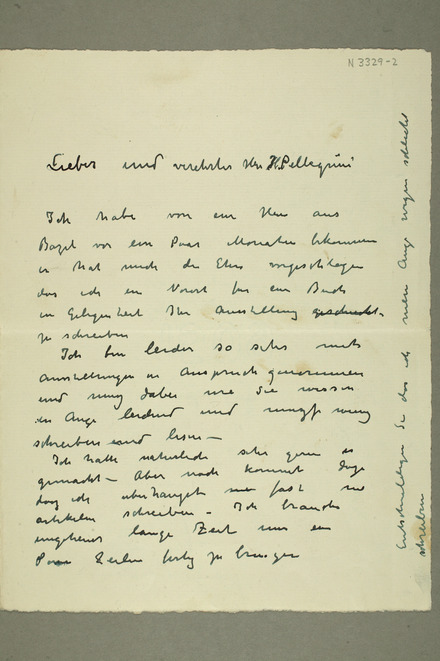 N 3329-2
Lieber und verehrter Herr H. Pellegrini
Ich habe von ein Herr aus
Basel vor ein Paar Monaten bekommen
er hat mich die Ehre vorgeschlagen
das ich ein Vorort für ein Buch
in Gelegenheit Ihr Ausstellung
zu schreiben
Ich bin leider so sehr mit
Ausstellungen in Anspruch genommen
und dabei wie Sie wissen
ein Auge leidend und wenig
schreiben und lesen –
Ich hatte natürlich sehr gern es
gemacht – Aber noch kommt dazu
das ich überhaupt fast nie
artikeln schreibe – Ich brauche
ungeheuer lange Zeit um ein
Paar Zeilen fertig zu bringen
Entschuldigen Sie das ich mein Auge wegen schlecht
schreiben